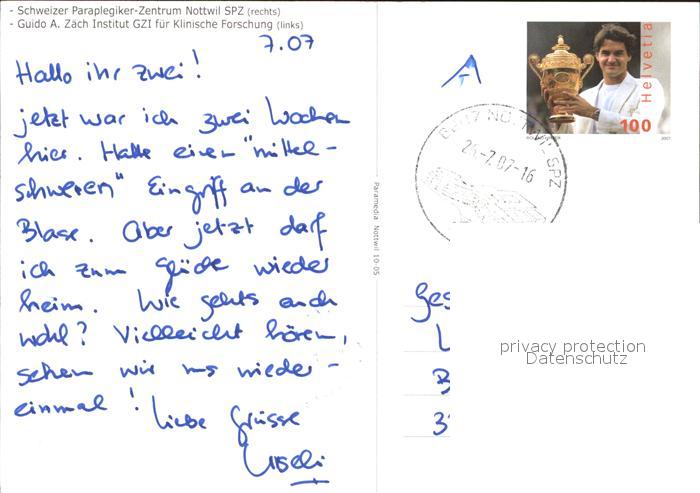 - Schweizer Paraplegiker-Zentrum Nottwil SPZ (rechts)
- Guido A. Zäch Institut GZI für Klinische Forschung (links)
7.07
Hallo ihr zwei!
jetzt war ich zwei Wochen
hier. Hatte einen "mittel-
schweren" Eingriff an der
Blase. Aber jetzt darf
ich zum Glück wieder
heim. Wie gehts euch
wohl? Vielleicht hören,
sehen wir uns wieder-
einmal!
Liebe Grüsse
Uschi
Paramedia Nottwil 10-05
A
Helvetia
100
2007
NOTTWIL SPZ
24-7.07-16
Ges
L
B
3
privacy protection
Datenschutz